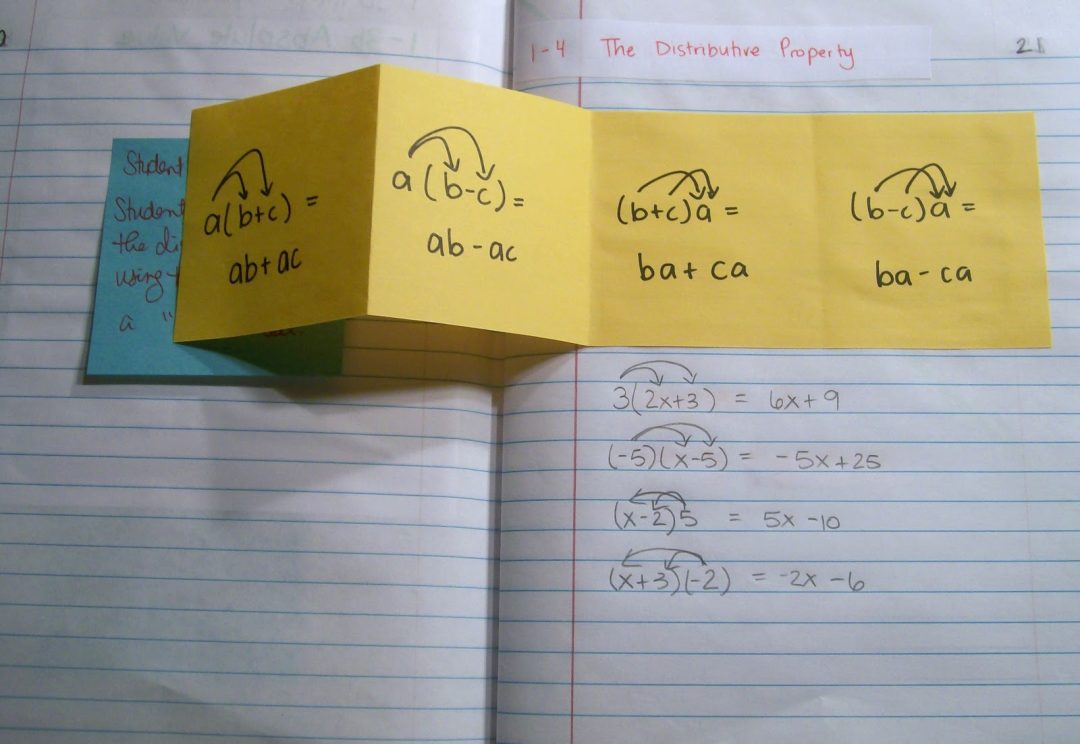 1-4 The Distributive Property
21
Student
Student
the
using
a "
a(b+c) =
ab+ac
a(b-c) =
ab-ac
(b+c)a =
ba+ca
(b-c)a =
ba-ca
3(2x+3) = 6x+9
(-5)(x-5) = -5x+25
(x-2)5 = 5x-10
(x+3)(-2) = -2x-6